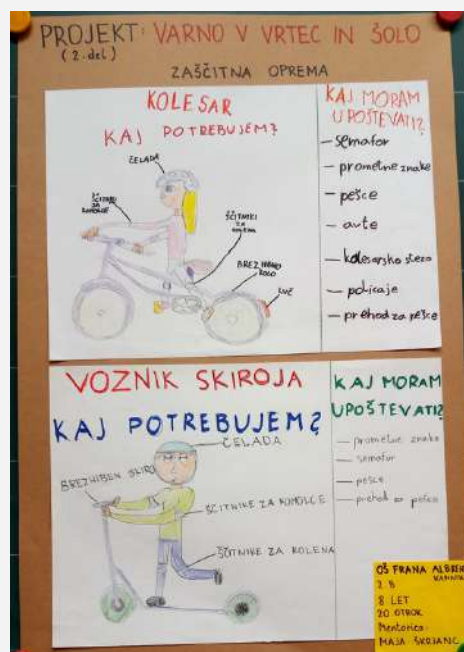 PROJEKT: VARNO V VRTEC IN ŠOLO
(2. del)
ZAŠČITNA OPREMA
KOLESAR
KAJ POTREBUJEM?
ČELADA
ŠČITNIKI
ZA
KOMOLCE
ŠČITNIKI
ZA
KOLENA
BREZHIBNO
KOLO
LUČ
KAJ MORAM
UPOŠTEVATI?
- semafor
- prometne znake
- pešce
- avte
- kolesarsko stezo
- policaje
- prehod za pešce
VOZNIK SKIROJA
KAJ POTREBUJEM?
ČELADA
BREZHIBEN SKIRO
ŠČITNIKE ZA KOMOLCE
ŠČITNIKE ZA KOLENA
KAJ MORAM
UPOŠTEVATI?
- prometne znake
- semafor
- pešce
- prehod za pešce
OŠ FRANA ALBREHTA
KAMNIK
2. B
8 LET
20 OTROK
Mentorica:
MAJA ŠKRJANC